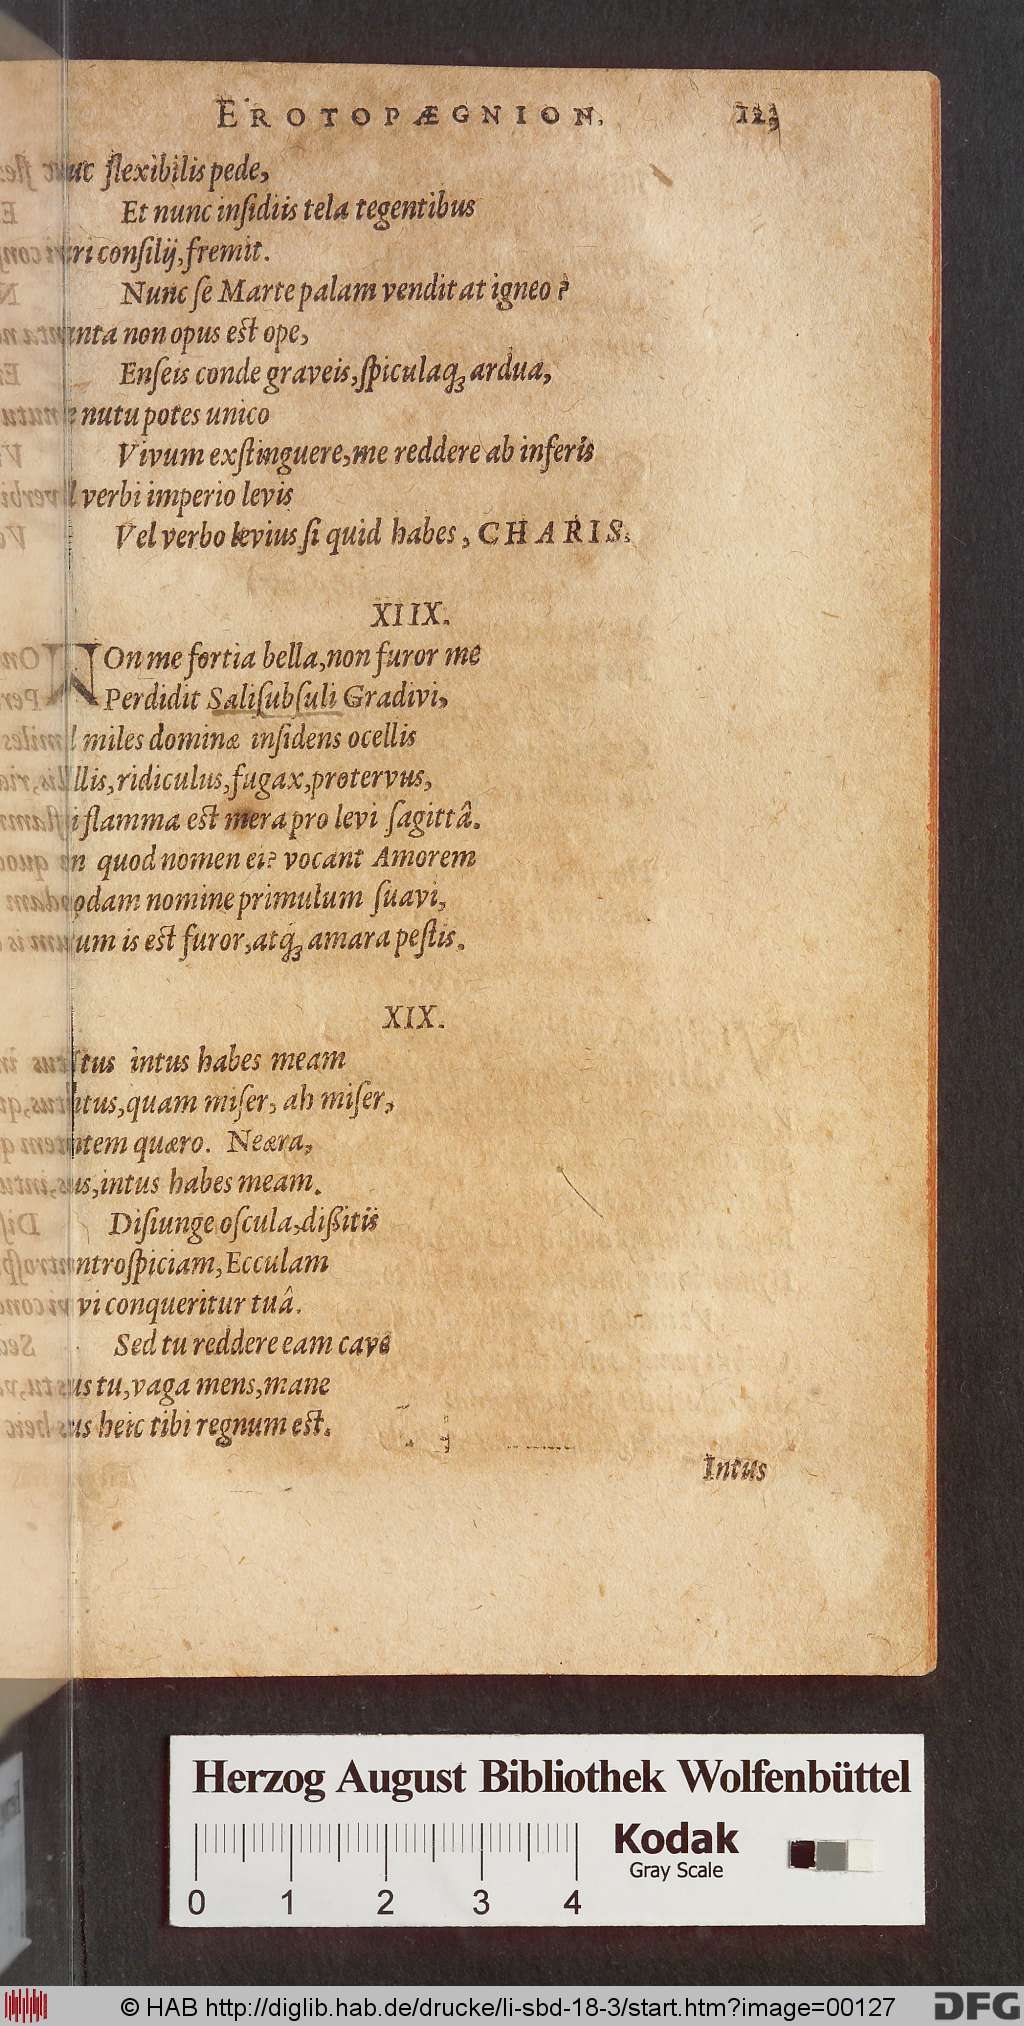 EROTOPÆGNION. 123
flexibilis pede,
Et nunc insidiis tela tegentibus
consilij, fremit.
Nunc se Marte palam vendit at igneo?
non opus est ope,
Enseis conde graveis, spiculaq; ardua,
nutu potes unico
Vivum exstinguere, me reddere ab inferis
verbi imperio levis
Vel verbo levius si quid habes, CHARIS.
XIIX.
NOn me fortia bella, non furor me
Perdidit Salisubsuli Gradivi,
miles dominæ insidens ocellis
ridiculus, fugax, protervus,
flamma est mera pro levi sagittâ.
quod nomen ei? vocant Amorem
nomine primulum suavi,
is est furor, atq; amara pestis.
XIX.
intus habes meam
quam miser, ah miser,
quæro. Neæra,
intus habes meam.
Disiunge oscula, dissitis
introspiciam, Ecculam
conqueritur tuâ.
Sed tu reddere eam cave
tu, vaga mens, mane
heic tibi regnum est.
Intus
Herzog August Bibliothek Wolfenbüttel
Kodak
Gray Scale
0 1 2 3 4
© HAB http://diglib.hab.de/drucke/li-sbd-18-3/start.htm?image=00127
DFG